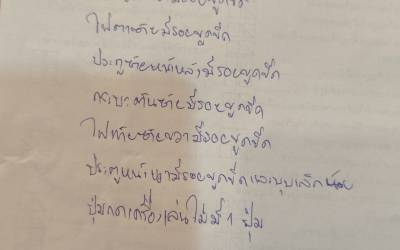 ไฟตาซ้ายมีรอยขูดขีด
ประตูซ้ายหน้าหลังมีรอยขูดขีด
กระบะด้านซ้ายมีรอยขูดขีด
ไฟท้ายซ้ายขวามีรอยขูดขีด
ประตูหน้าขวามีรอยขูดขีดและบุบเล็กน้อย
ปุ่มกดเครื่องเล่นไม่มี 1 ปุ่ม